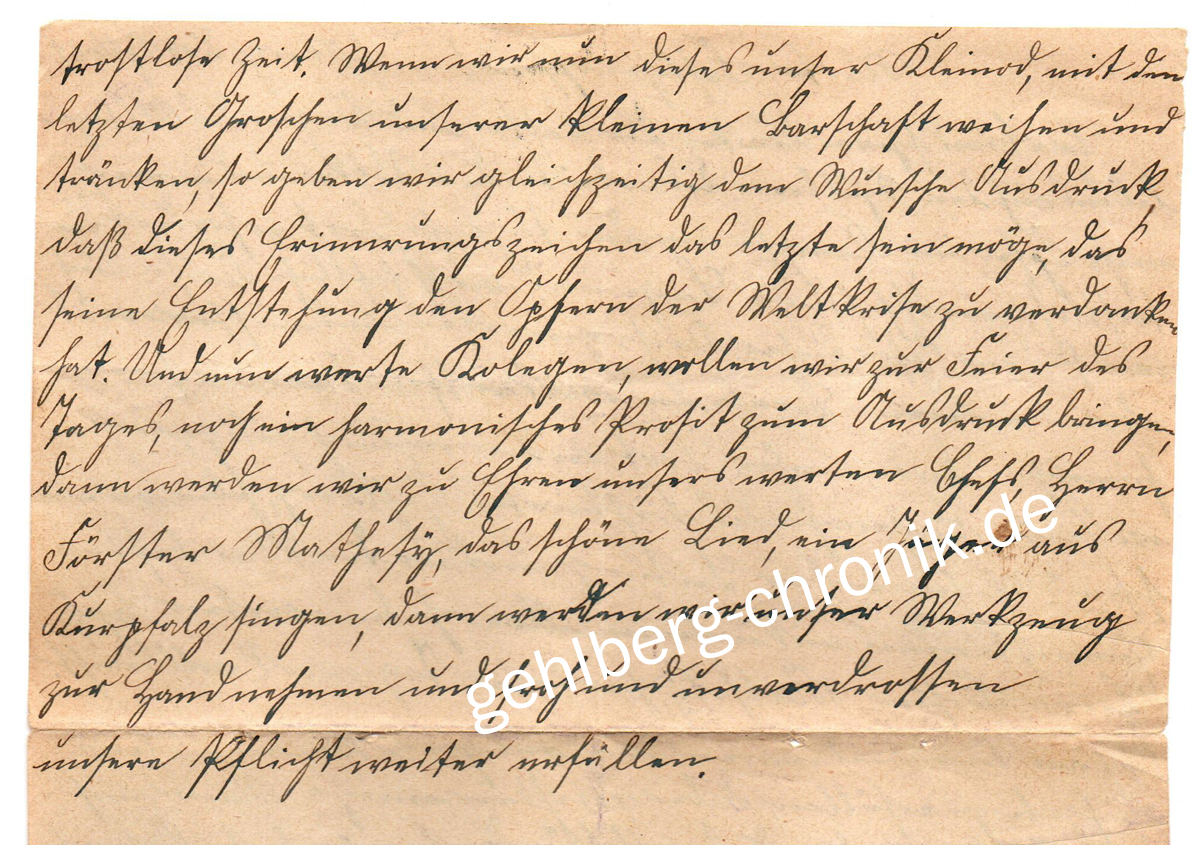 trostlose Zeit. Wenn wir nun dieses unser Kleinod, mit den
letzten Groschen unserer kleinen Barschaft weihen und
tränken, so geben wir gleichzeitig dem Wunsche Ausdruck
daß dieses Erinnerungszeichen das letzte sein möge, das
seine Entstehung den Opfern der Weltkrise zu verdanken
hat. Und nun werte Kolegen, wollen wir zur Feier des
Tages, noch ein harmonisches Prosit zum Ausdruck bringen,
dann werden wir zu Ehren unsers werten Chefs, Herrn
Förster Mathesy, das schöne Lied, ein Jäger aus
Kurpfalz singen, dann werden wir unser Werkzeug
zur Hand nehmen und froh und unverdrossen
unsere Pflicht weiter erfüllen.
gehlberg-chronik.de